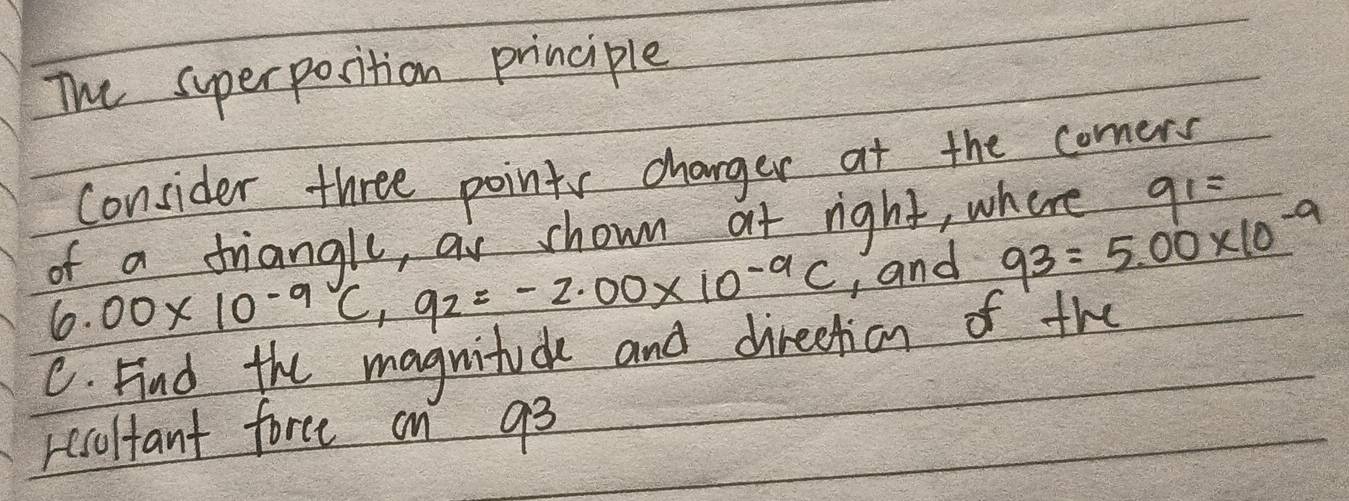 The superposition principle
Consider three points charges at the corners
of a triangle, as shown at right, where q1=
6.00 x 10⁻⁹ C, q2 = -2.00 x 10⁻⁹ C, and q3 = 5.00 x 10⁻⁹
C. Find the magnitude and direction of the
resultant force on q3